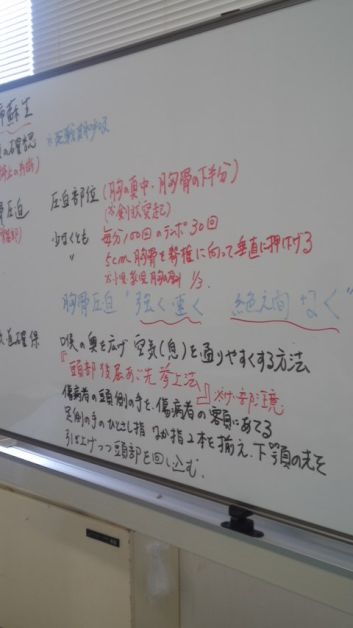 蘇生
の確認
圧迫 圧迫部位 (胸の真中・胸骨の下半分)
(※剣状突起)
少なくとも 毎分100回のテンポ 30回
〃 5cm 胸骨を脊椎に向って垂直に押下げる
1/3
胸骨圧迫 "強く・速く 絶え間なく"
気道確保 喉の奥を広げ 空気(息)を通りやすくする方法
頭部後屈あご先挙上法
傷病者の頭側の手を、傷病者の額にあてる
足側の手のひとさし指 なか指2本を揃え、下顎の先を
引き上げつつ頭部を回し込む。